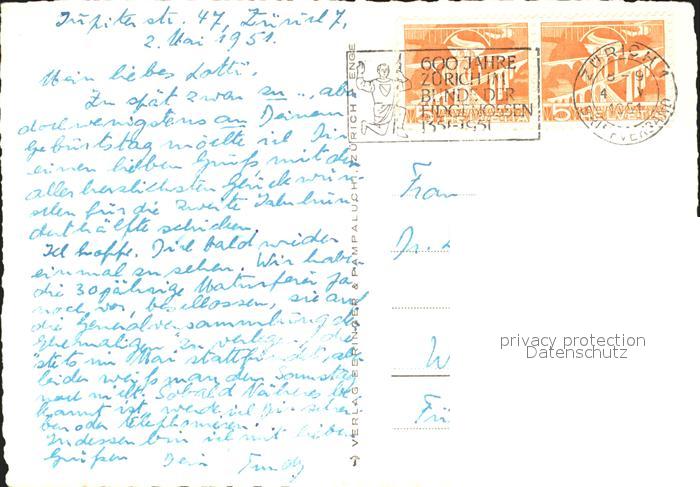 Jupiterstr. 47, Zürich 7,
2. Mai 1951.
Mein liebes Lotti,
Zu spät zwar zu ..., aber
doch wenigstens an Deinem
Geburtstag möchte ich Dir
einen lieben Gruss mit den
allerherzlichsten Glückwün-
schen für die zweite Jahrhun-
derthälfte schicken.
Ich hoffe, Dich bald wieder
einmal zu sehen. Wir haben
die 30jährige Maturfeier ja
noch vor, beschlossen, sie auf
die Generalversammlung der
Ehemaligen zu verlegen, die
stets im Mai stattfindet, aber
leider weiss man den Samstag
noch nicht. Sobald Näheres be-
kannt ist, werde ich Dir schrei-
ben oder telephonieren.
Indessen bin ich mit lieben
Grüssen Dein Trudy
VERLAG BERINGER & PAMPALUCHI, ZÜRICH
ENGE
600 JAHRE
ZÜRICH IM
BUNDE DER
EIDGENOSSEN
1351-1951
ZÜRICH 1
BRIEFVERSAND
5
HELVETIA
5
HELVETIA
Frau
Dr.
W
privacy protection
Datenschutz